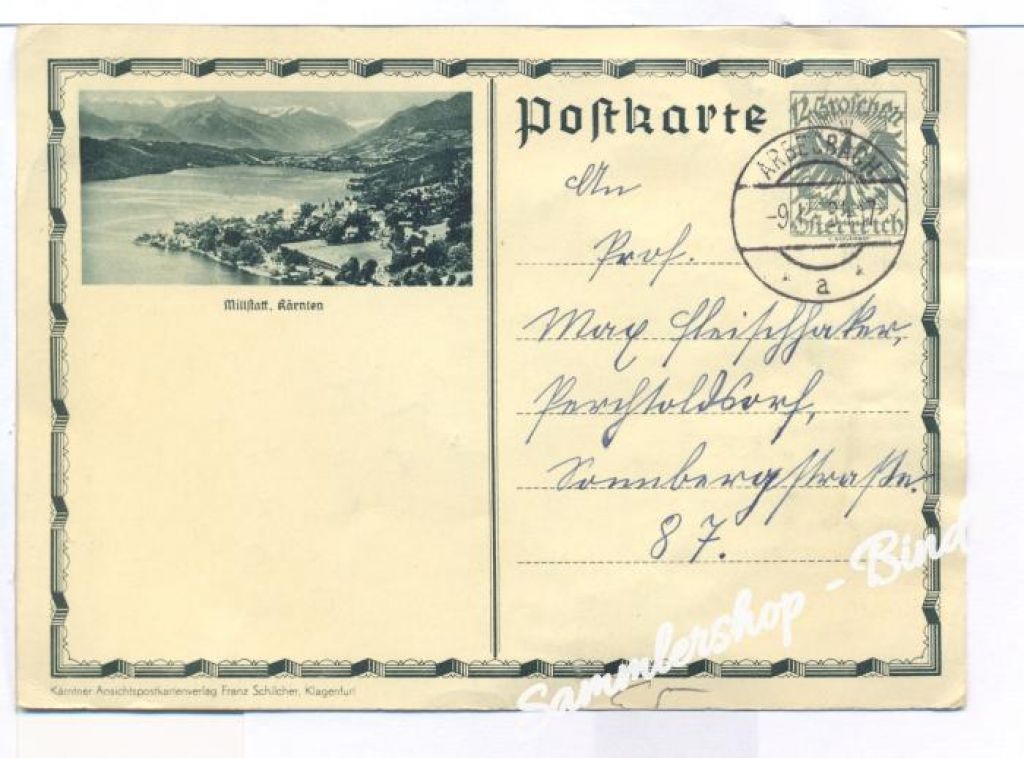 Postkarte
12 Groschen
Österreich
ARBESBACH
a
Millstatt, Kärnten
An
Prof.
Max Fleischhaker,
Perchtoldsdorf,
Sonnbergstraße.
87.
Kärntner Ansichtspostkartenverlag Franz Schilcher, Klagenfurt
Sammlershop - Bind